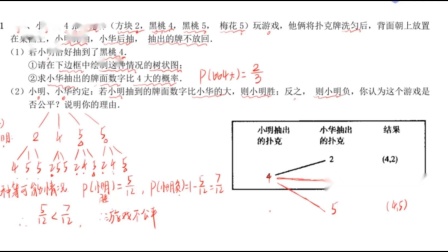 4
(方块2,黑桃4,黑桃5,
梅花5)玩游戏,他俩将扑克牌洗匀后,背面朝上放置
小华后抽,抽出的牌不放回.
(1)若小明恰好抽到了黑桃4.
①请在下边框中绘制这种情况的树状图;
②求小华抽出的牌面数字比4大的概率.
P(比4大)=2/3
(2)小明、小华约定:若小明抽到的牌面数字比小华的大,则小明胜;反之,则小明负,你认为这个游戏是
否公平?说明你的理由.
2 4 5 5
4 5 5 2 5 5 2 4 5 2 4 5
P(小明胜)=5/12, P(小明负)=1-5/12=7/12
∴ 5/12<7/12 ∴游戏不公平
小明抽出的扑克 小华抽出的扑克 结果
2 (4,2)
4
5 (4,5)